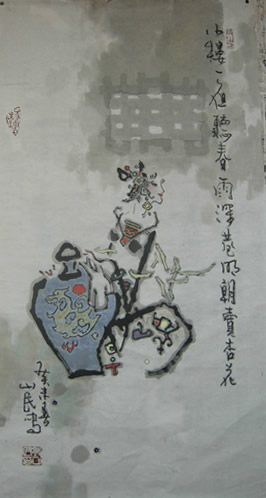 小楼一夜聽春雨深巷明朝賣杏花
癸未春
山民